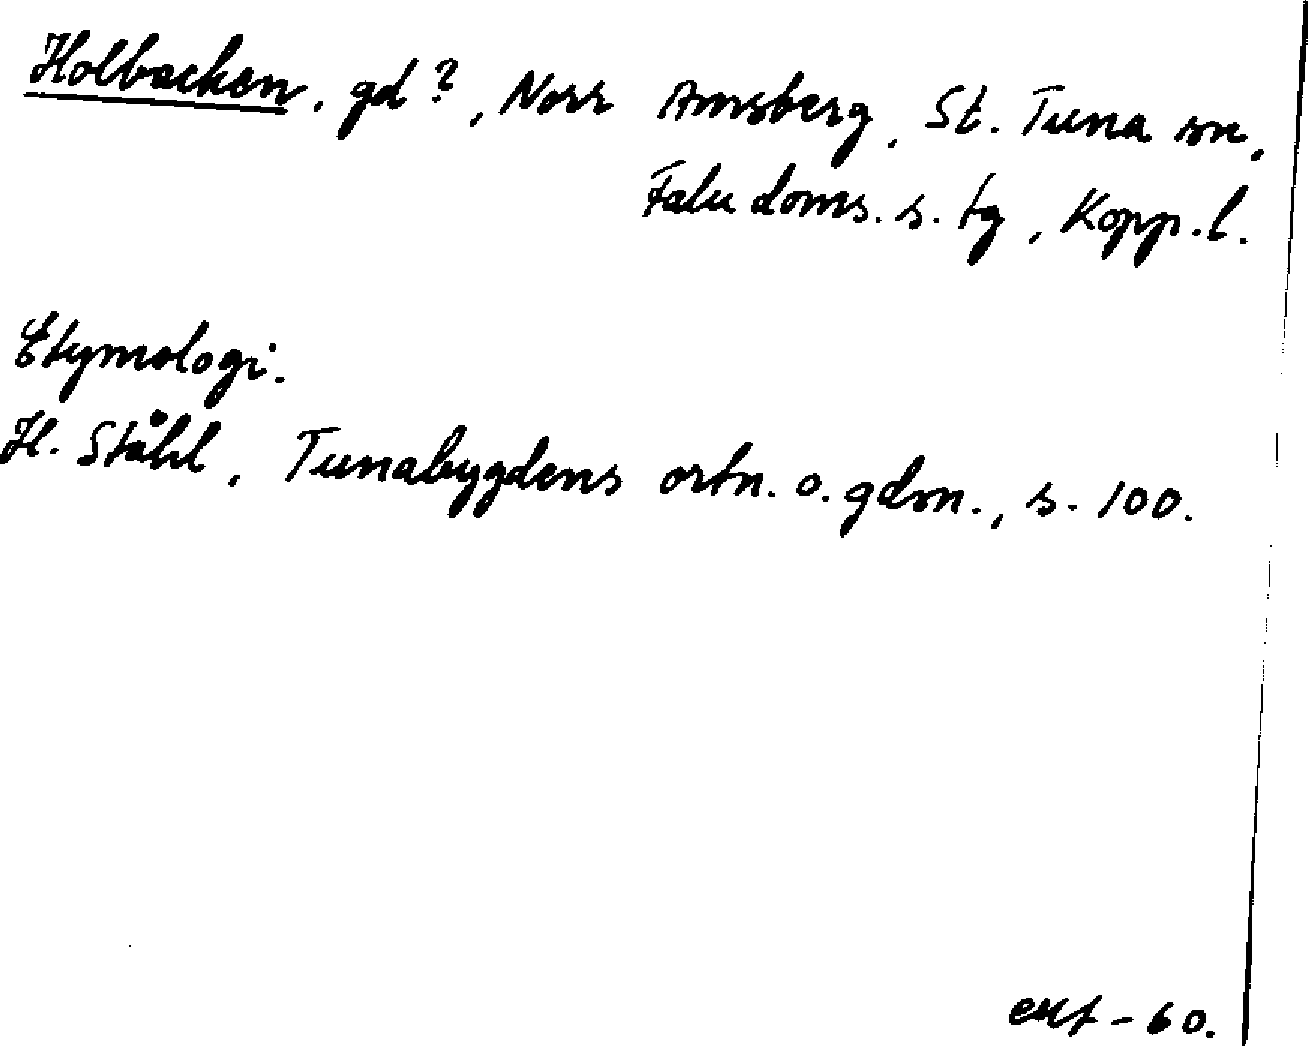 Holbacken, gd?, Norr Amsberg, St. Tuna sn,
Falu doms. s. tg, Kopp. l.
Etymologi.
H. Ståhl, Tunabygdens ortn. o. gdsn., s. 100.
- 60.